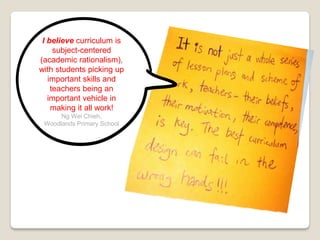 I believe curriculum is
subject-centered
(academic rationalism),
with students picking up
important skills and
teachers being an
important vehicle in
making it all work!
Ng Wei Chieh,
Woodlands Primary School
It is not just a whole series
of lesson plans and scheme of
work, teachers - their beliefs,
their motivation, their competence,
is key. The best curriculum
design can fail in the
wrong hands!!!